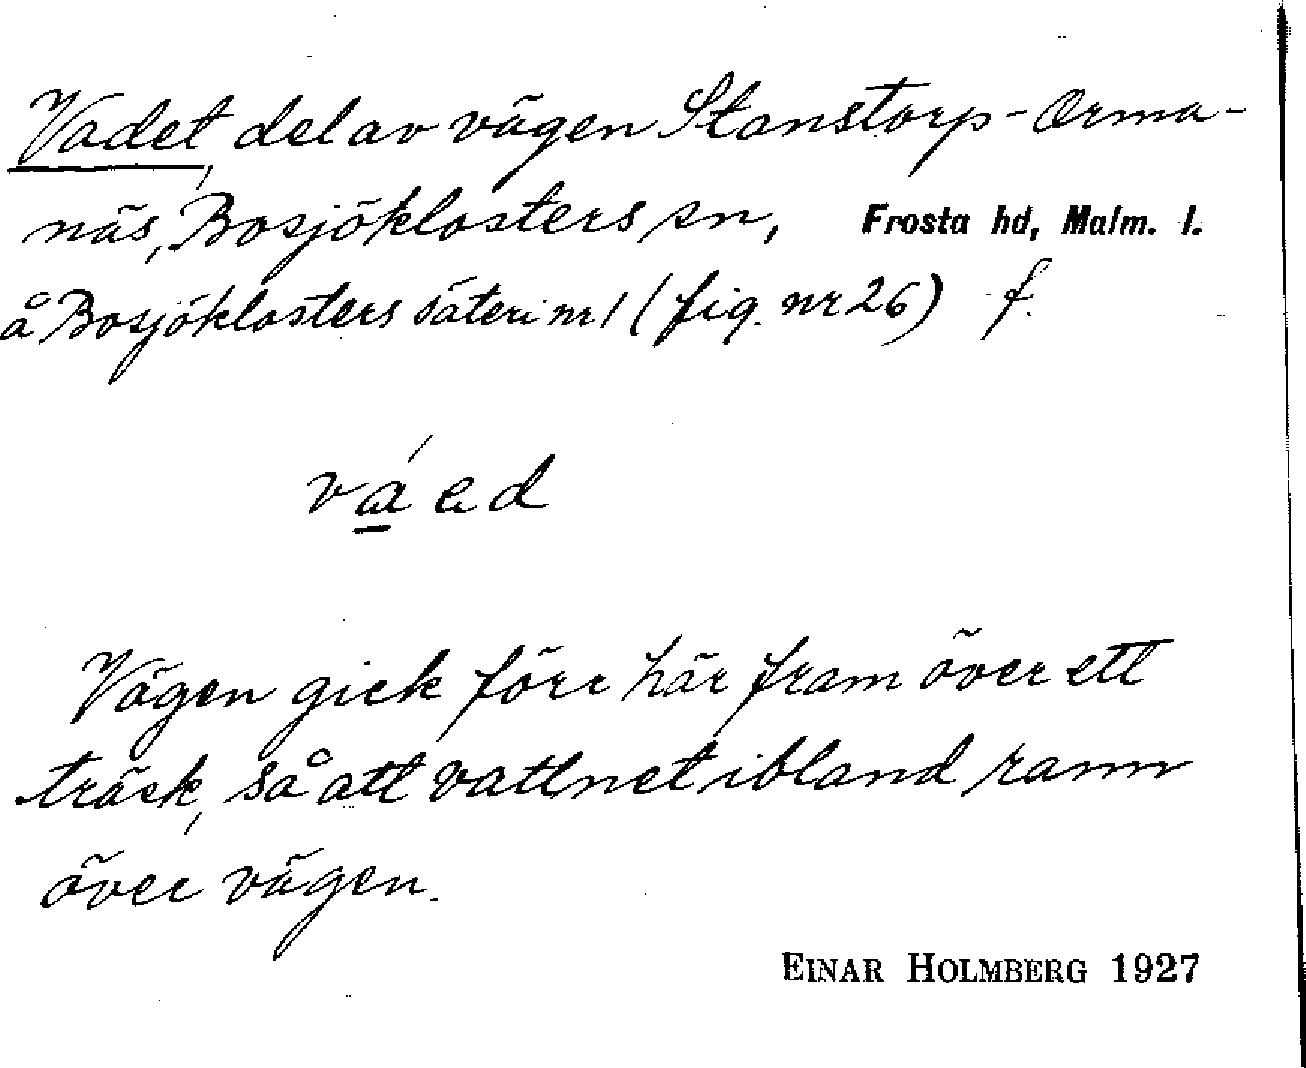 Vadet, del av vägen Stanstorp-Orma-
näs, Bosjöklosters sn, Frosta hd, Malm. l.
å Bosjöklosters säteri nr 1 (fig. nr 26) f.
váed
Vägen gick förr här fram över ett
träsk, så att vattnet ibland rann
över vägen.
EINAR HOLMBERG 1927